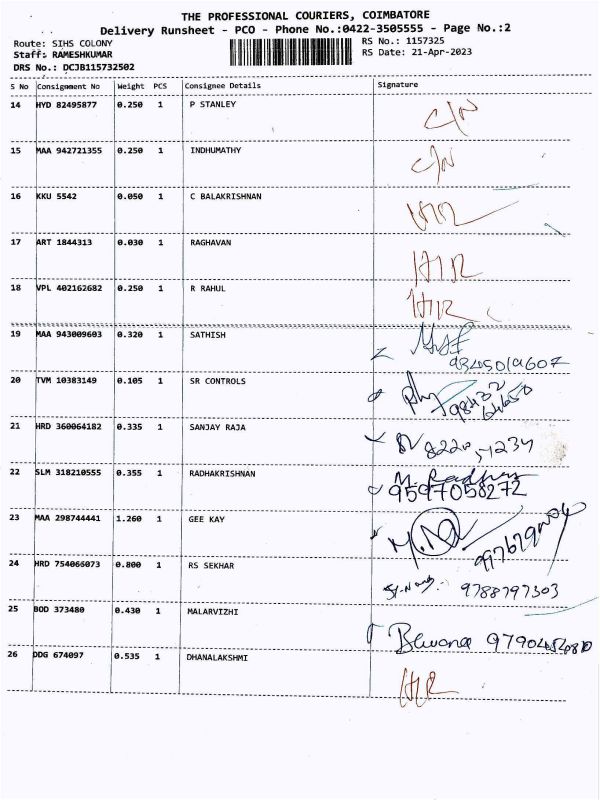 THE PROFESSIONAL COURIERS, COIMBATORE
Delivery Runsheet - PCO - Phone No.:0422-3505555 - Page No.:2
Route: SIHS COLONY RS No.: 1157325
Staff: RAMESHKUMAR RS Date: 21-Apr-2023
DRS No.: DCJB115732502
S No Consignment No Weight PCS Consignee Details Signature
14 HYD 82495877 0.250 1 P STANLEY C/N
15 MAA 942721355 0.250 1 INDHUMATHY C/N
16 KKU 5542 0.050 1 C BALAKRISHNAN
17 ART 1844313 0.030 1 RAGHAVAN HIR
18 VPL 402162682 0.250 1 R RAHUL HIR
19 MAA 943009603 0.320 1 SATHISH 9345019607
20 TVM 10383149 0.105 1 SR CONTROLS
21 HRD 360064182 0.335 1 SANJAY RAJA
22 SLM 318210555 0.355 1 RADHAKRISHNAN M. 9597058272
23 MAA 298744441 1.260 1 GEE KAY
24 HRD 754066073 0.800 1 RS SEKHAR 9788797303
25 BOD 373480 0.430 1 MALARVIZHI
26 DDG 674097 0.535 1 DHANALAKSHMI HIR